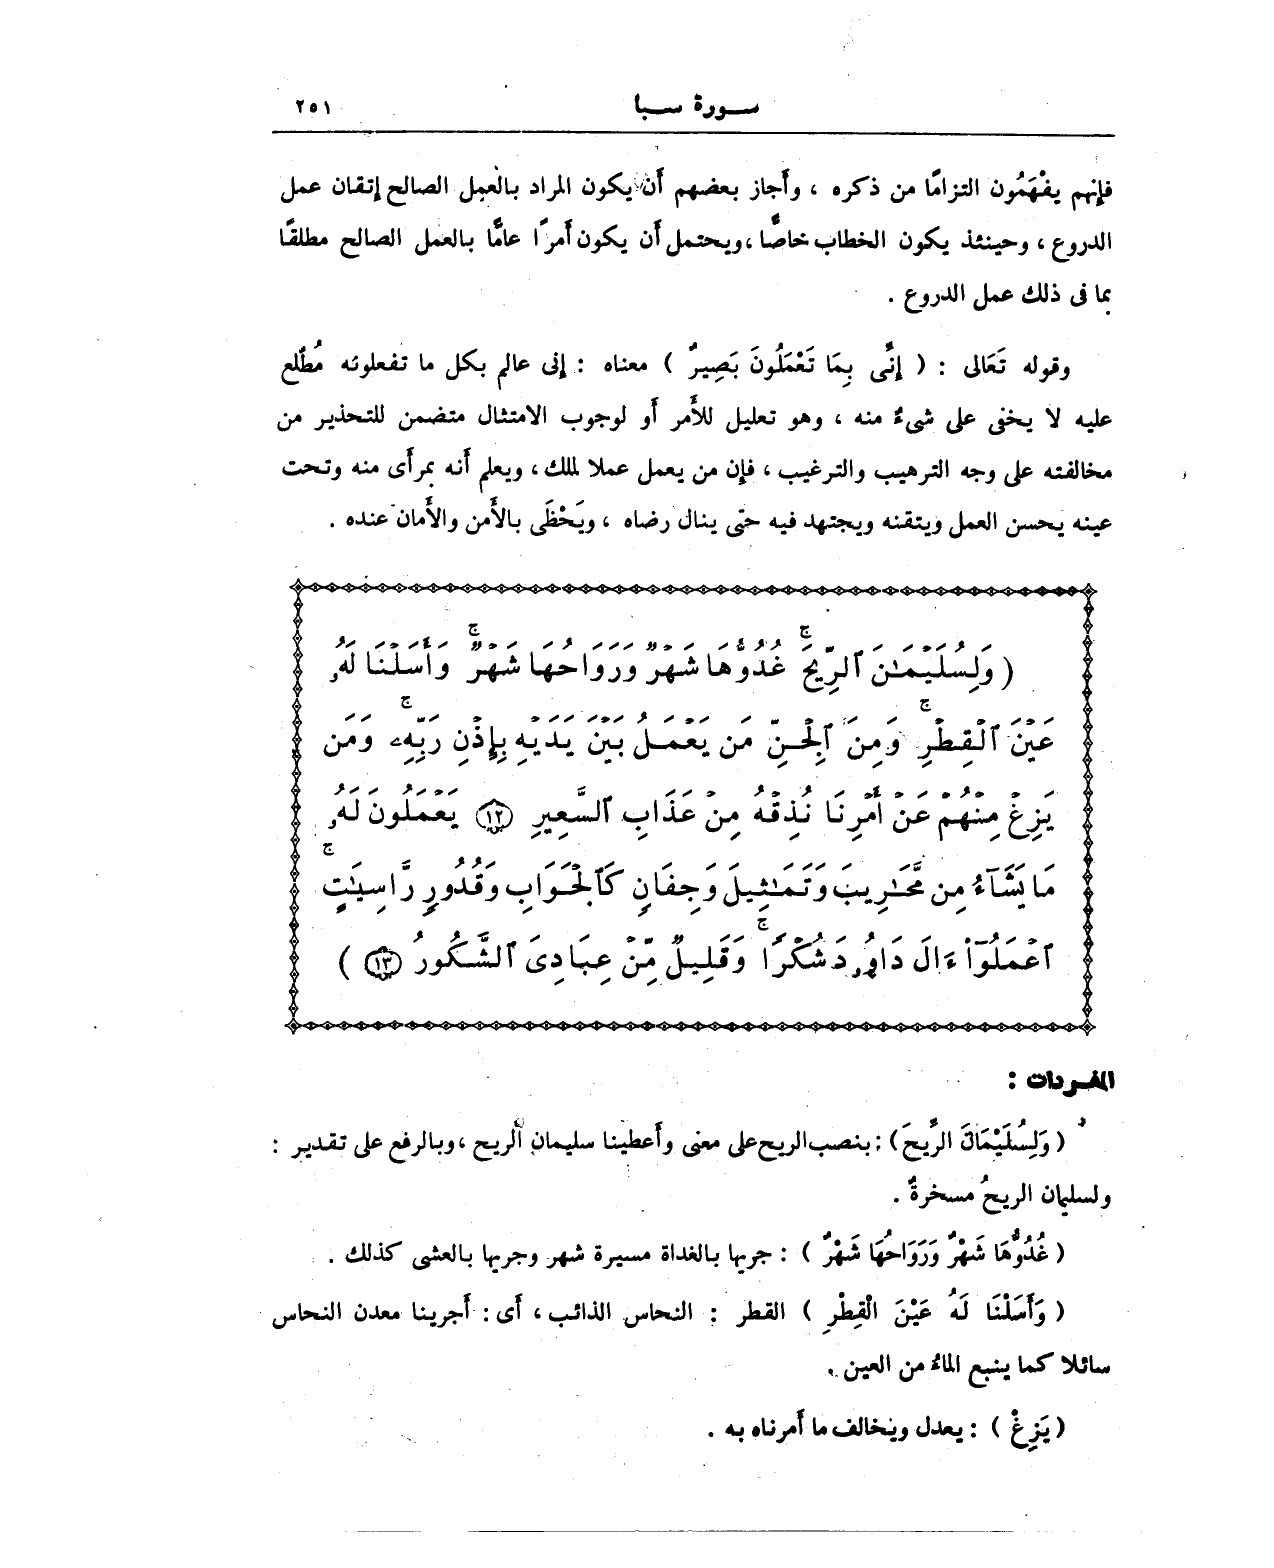 سورة سبا ٢٥١
فإنهم يفْهَمُون التزامًا من ذكره ، وأَجاز بعضهم أَن يكون المراد بالعمل الصالح إتقان عمل
الدروع ، وحينئذ يكون الخطاب خاصًّا ، ويحتمل أن يكون أَمرًا عامًّا بالعمل الصالح مطلقًا
بما فى ذلك عمل الدروع .
وقوله تَعَالى : ( إِنِّى بِمَا تَعْمَلُونَ بَصِيرٌ ) معناه : إنى عالم بكل ما تفعلونه مُطَّلع
عليه لا يخفى على شىءٌ منه ، وهو تعليل للأَمر أَو لوجوب الامتثال متضمن للتحذير من
مخالفته على وجه الترهيب والترغيب ، فإن من يعمل عملا لملك ، ويعلم أَنه بمرأَى منه وتحت
عينه يحسن العمل ويتقنه ويجتهد فيه حتى ينال رضاه ، ويَحْظَى بالأَمن والأَمان عنده .
( وَلِسُلَيْمَـٰنَ ٱلرِّيحَ غُدُوُّهَا شَهْرٌ وَرَوَاحُهَا شَهْرٌ ۚ وَأَسَلْنَا لَهُۥ
عَيْنَ ٱلْقِطْرِ ۚ وَمِنَ ٱلْجِنِّ مَن يَعْمَلُ بَيْنَ يَدَيْهِ بِإِذْنِ رَبِّهِۦ ۚ وَمَن
يَزِغْ مِنْهُمْ عَنْ أَمْرِنَا نُذِقْهُ مِنْ عَذَابِ ٱلسَّعِيرِ ١٢ يَعْمَلُونَ لَهُۥ
مَا يَشَآءُ مِن مَّحَـٰرِيبَ وَتَمَـٰثِيلَ وَجِفَانٍ كَٱلْجَوَابِ وَقُدُورٍ رَّاسِيَـٰتٍ ۚ
ٱعْمَلُوٓا۟ ءَالَ دَاوُۥدَ شُكْرًا ۚ وَقَلِيلٌ مِّنْ عِبَادِىَ ٱلشَّكُورُ ١٣ )
المفردات :
( وَلِسُلَيْمَانَ الرِّيحَ ) : بنصب الريح على معنى وأَعطينا سليمان الريح ، وبالرفع على تقدير :
ولسليمان الريحُ مسخرةٌ .
( غُدُوُّهَا شَهْرٌ وَرَوَاحُهَا شَهْرٌ ) : جريها بالغداة مسيرة شهر وجريها بالعشى كذلك .
( وَأَسَلْنَا لَهُ عَيْنَ الْقِطْرِ ) القطر : النحاس الذائب ، أَى : أَجرينا معدن النحاس
سائلا كما ينبع الماءُ من العين .
( يَزِغْ ) : يعدل ويخالف ما أَمرناه به .